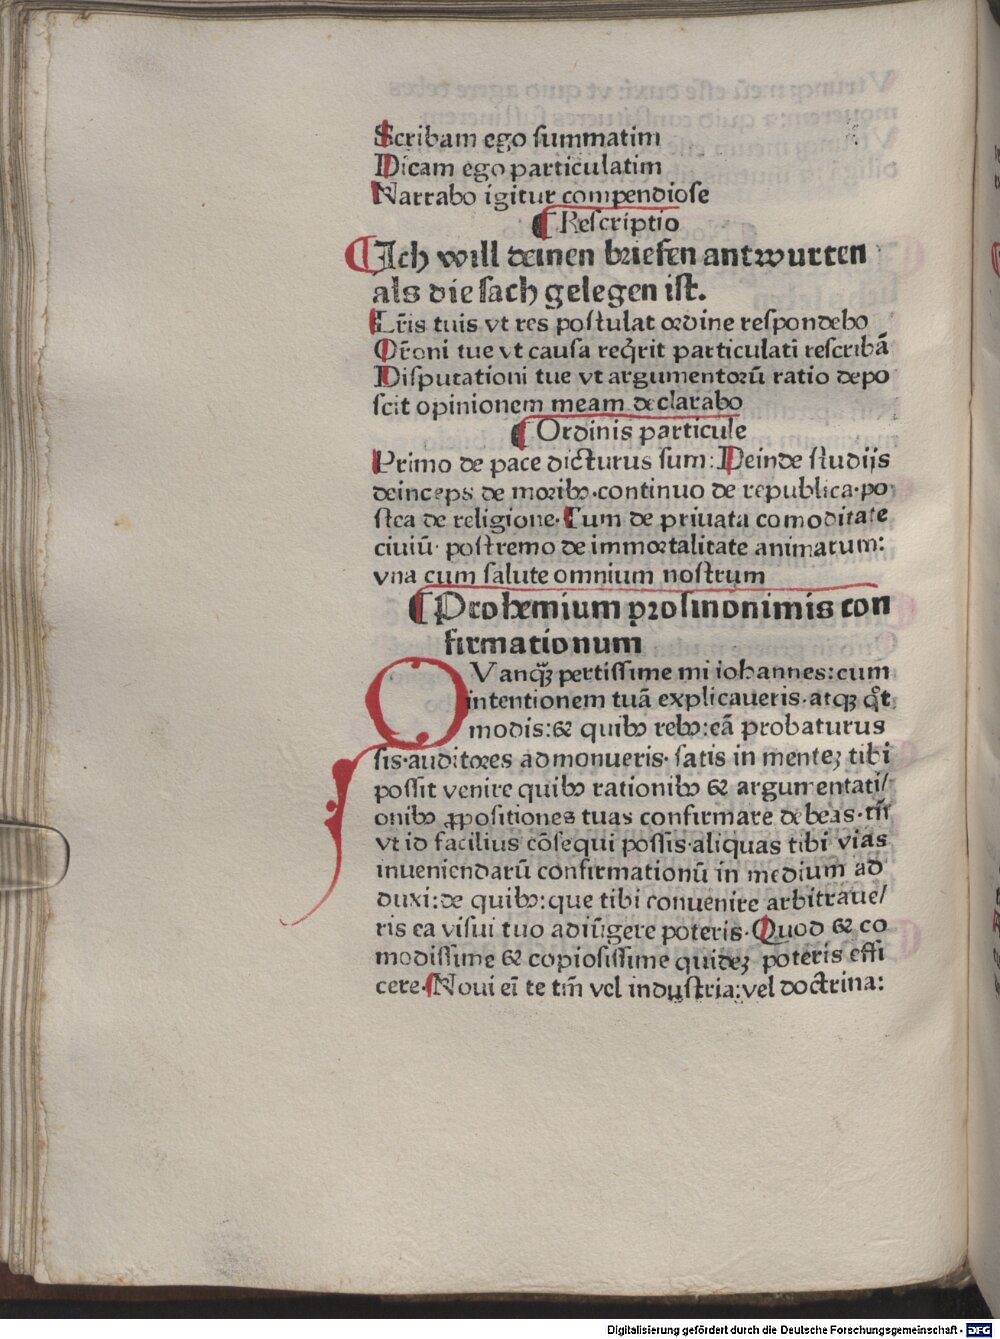 Scribam ego summatim
Dicam ego particulatim
Narrabo igitur compendiose
¶ Rescriptio
¶ Ich will deinen briefen antwurten
als die sach gelegen ist.
Lr̄is tuis vt res postulat ordine respondebo
Or̄oni tue vt causa reqͥrit particulatī rescribā
Disputationi tue vt argumentorū ratio depo
scit opinionem meam declarabo
¶ Ordinis particule
Primo de pace dicturus sum: Deinde studijs
deinceps de moribꝰ·continuo de republica·po
stea de religione· Tum de priuata comoditate
ciuiū· postremo de immortalitate animarum:
vna cum salute omnium nostrum
¶ Prohemium pro sinonimis con
firmationum
QVanqꝫ pertissime mi iohannes: cum
intentionem tuā explicaueris·atqꝫ qͦt
modis: & quibꝰ rebꝰ: eā probaturus
sis·auditores admonueris· satis in menteꝫ tibi
possit venire quibꝰ rationibꝰ & argumentati/
onibꝰ ꝓpositiones tuas confirmare debeas·tn̄
vt id facilius cōsequi possis·aliquas tibi vias
inueniendarū confirmationū in medium ad
duxi: de quibꝰ: que tibi conuenire arbitraue/
ris ea visui tuo adiūgere poteris· Quod & co
modissime & copiosissime quideꝫ poteris effi
cere· Noui eī te tm̄ vel industria: vel doctrina:
Digitalisierung gefördert durch die Deutsche Forschungsgemeinschaft - DFG